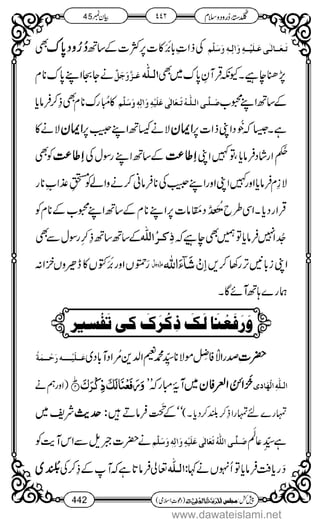 گلدستۂ دُرُود و سلام ۴۴۲ بیان نمبر 45
تَعَالٰی عَلَیْہِ وَاٰلِہٖ وَسَلَّم کی ذاتِ بابَرَکات پر کثرت کے ساتھ دُرُودِ پاک بھی
پڑھنا چاہیے۔ کیونکہ قرآنِ پاک میں بھی اللّٰہ عَزَّوَجَلَّ نے جابجا اپنے نامِ پاک
کے ساتھ اپنے محبوب صَلَّی اللّٰہُ تَعَالٰی عَلَیْہِ وَاٰلِہٖ وَسَلَّم کا نامِ مبارَک بھی ذِکر فرمایا
ہے۔ جیسا کہ خُود اپنی ذات پر ایمان کیساتھ اپنے حبیب پر ایمان لانے کا
حکم ارشاد فرمایا، تو کہیں اپنی اطاعت کے ساتھ اپنے رسول کی اطاعت کو بھی
لازم فرمایا اور کہیں اپنی اور اپنے حبیب کی نافرمانی کرنے والے کو مستحقِ عذابِ نار
قرار دیا۔ اسی طرح مُتَعَدَّد مقامات پر اپنے نام کے ساتھ اپنے محبوب کے نام کو
جُدا نہیں فرمایا تو ہمیں بھی چاہیے کہ ذِکرُ اللّٰہ کے ساتھ ساتھ ذِکرِ رسول سے بھی
اپنی زبانیں تر رکھا کریں اِنْ شَآءَ اللّٰہ رحمتوں اور برکتوں کا ڈھیروں خزانہ
ہمارے ہاتھ آئے گا۔
وَرَفَعْنَا لَکَ ذِکْرَک کی تفسیر
حضرت صدرالافاضل مولانا سیّد محمد نعیم الدین مُراد آبادی عَلَیْہِ رَحْمَۃُ
اللّٰہِ الْہَادِی خَزَائِنُ الْعِرفان میں آیۂ مبارکہ ”وَرَفَعْنَا لَكَ ذِكْرَكَ (اور ہم نے
تمہارے لئے تمہارا ذِکر بلند کردیا۔)“ کے تَحت فرماتے ہیں: حدیث شریف میں
ہے سیّدِ عالَم صَلَّی اللّٰہُ تَعَالٰی عَلَیْہِ وَاٰلِہٖ وَسَلَّم نے حضرت جبریل سے اس آیت کو
دریافت فرمایا تو اُنہوں نے کہا: اللّٰہ تعالٰی فرماتا ہے کہ آپ کے ذِکر کی بلندی
442
www.dawateislami.net